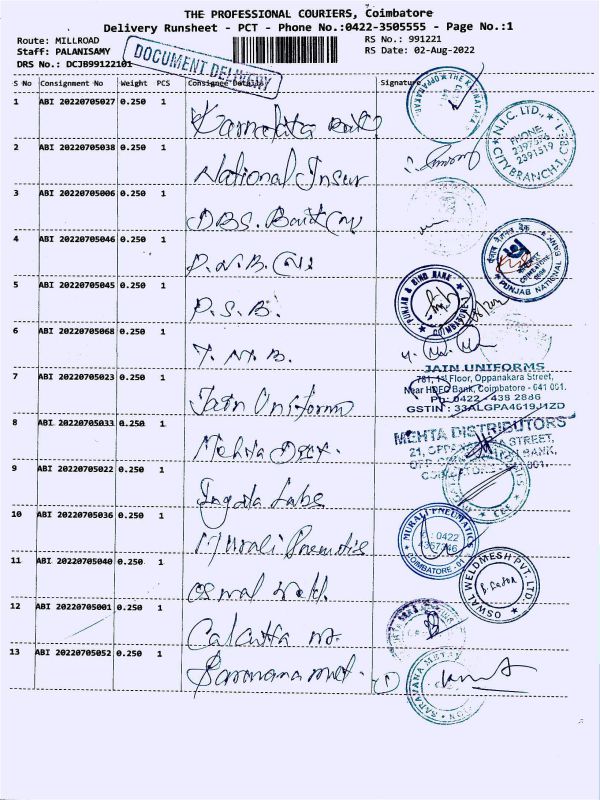 THE PROFESSIONAL COURIERS, Coimbatore
Delivery Runsheet - PCT - Phone No.:0422-3505555 - Page No.:1
Route: MILLROAD RS No.: 991221
Staff: PALANISAMY RS Date: 02-Aug-2022
DRS No.: DCJB99122101
DOCUMENT DELIVERY
S No Consignment No Weight PCS Consignee Details Signature
1 ABI 20220705027 0.250 1 Karnataka Bank
THE KARNATAKA
2 ABI 20220705038 0.250 1 National Insur
N.I.C. LTD.,
PHONE
2397536
2391519
CITY BRANCH-1, CBE-1
3 ABI 20220705006 0.250 1 DBS. Bank
4 ABI 20220705046 0.250 1 P.N.B.
PUNJAB NATIONAL BANK
COIMBATORE
5 ABI 20220705045 0.250 1 P.S.B.
PUNJAB & SIND BANK
COIMBATORE
6 ABI 20220705068 0.250 1 T.N.B.
7 ABI 20220705023 0.250 1 Jain Uniform
JAIN UNIFORMS
781, 1st Floor, Oppanakara Street,
Near HDFC Bank, Coimbatore - 641 001.
Ph: 0422 - 438 2886
GSTIN : 33ALGPA4619J1ZD
8 ABI 20220705033 0.250 1 Mehta Dist.
MEHTA DISTRIBUTORS
9 ABI 20220705022 0.250 1
10 ABI 20220705036 0.250 1 Murali Pneumatics
MURALI PNEUMATICS
COIMBATORE
11 ABI 20220705040 0.250 1 Oswal Weld.
OSWAL WELDMESH PVT. LTD.
12 ABI 20220705001 0.250 1 Calcutta
13 ABI 20220705052 0.250 1 Saravana met.
SARAVANA METAL